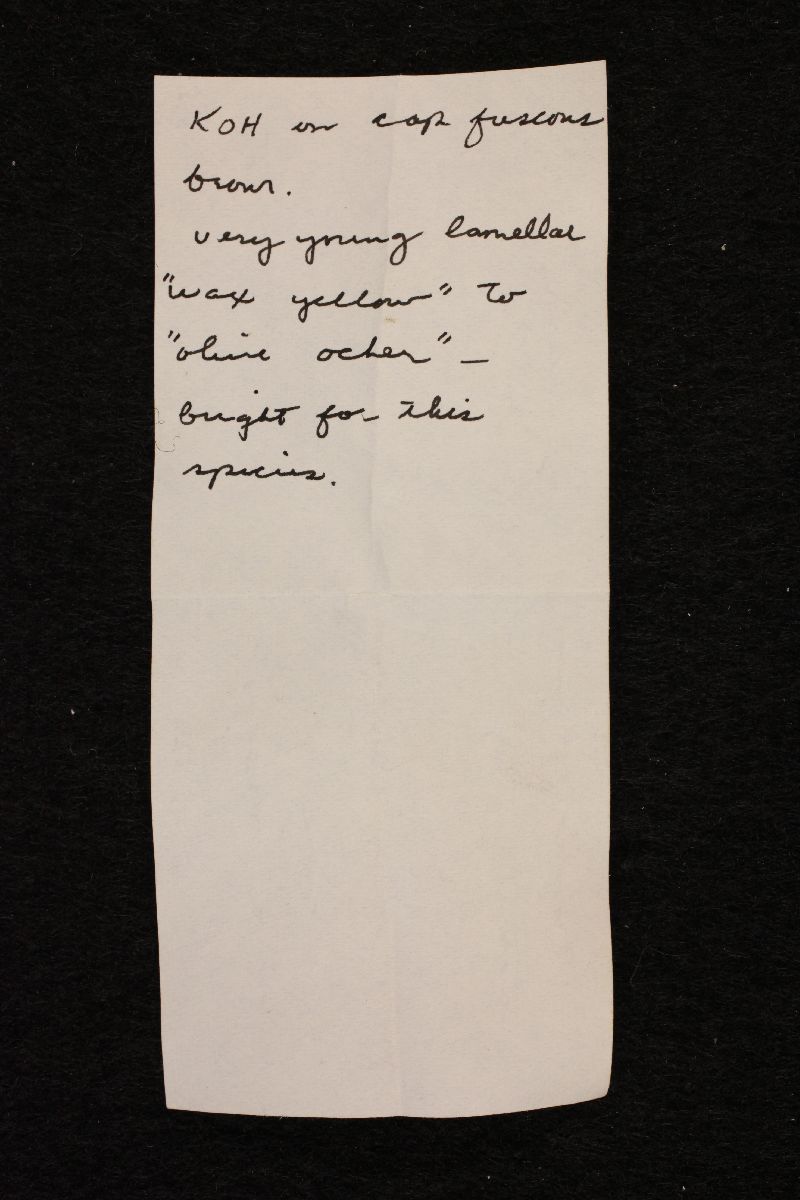 KOH on cap fuscous
brown.
very young lamellae
"wax yellow" to
"olive ocher" —
bright for this
species.